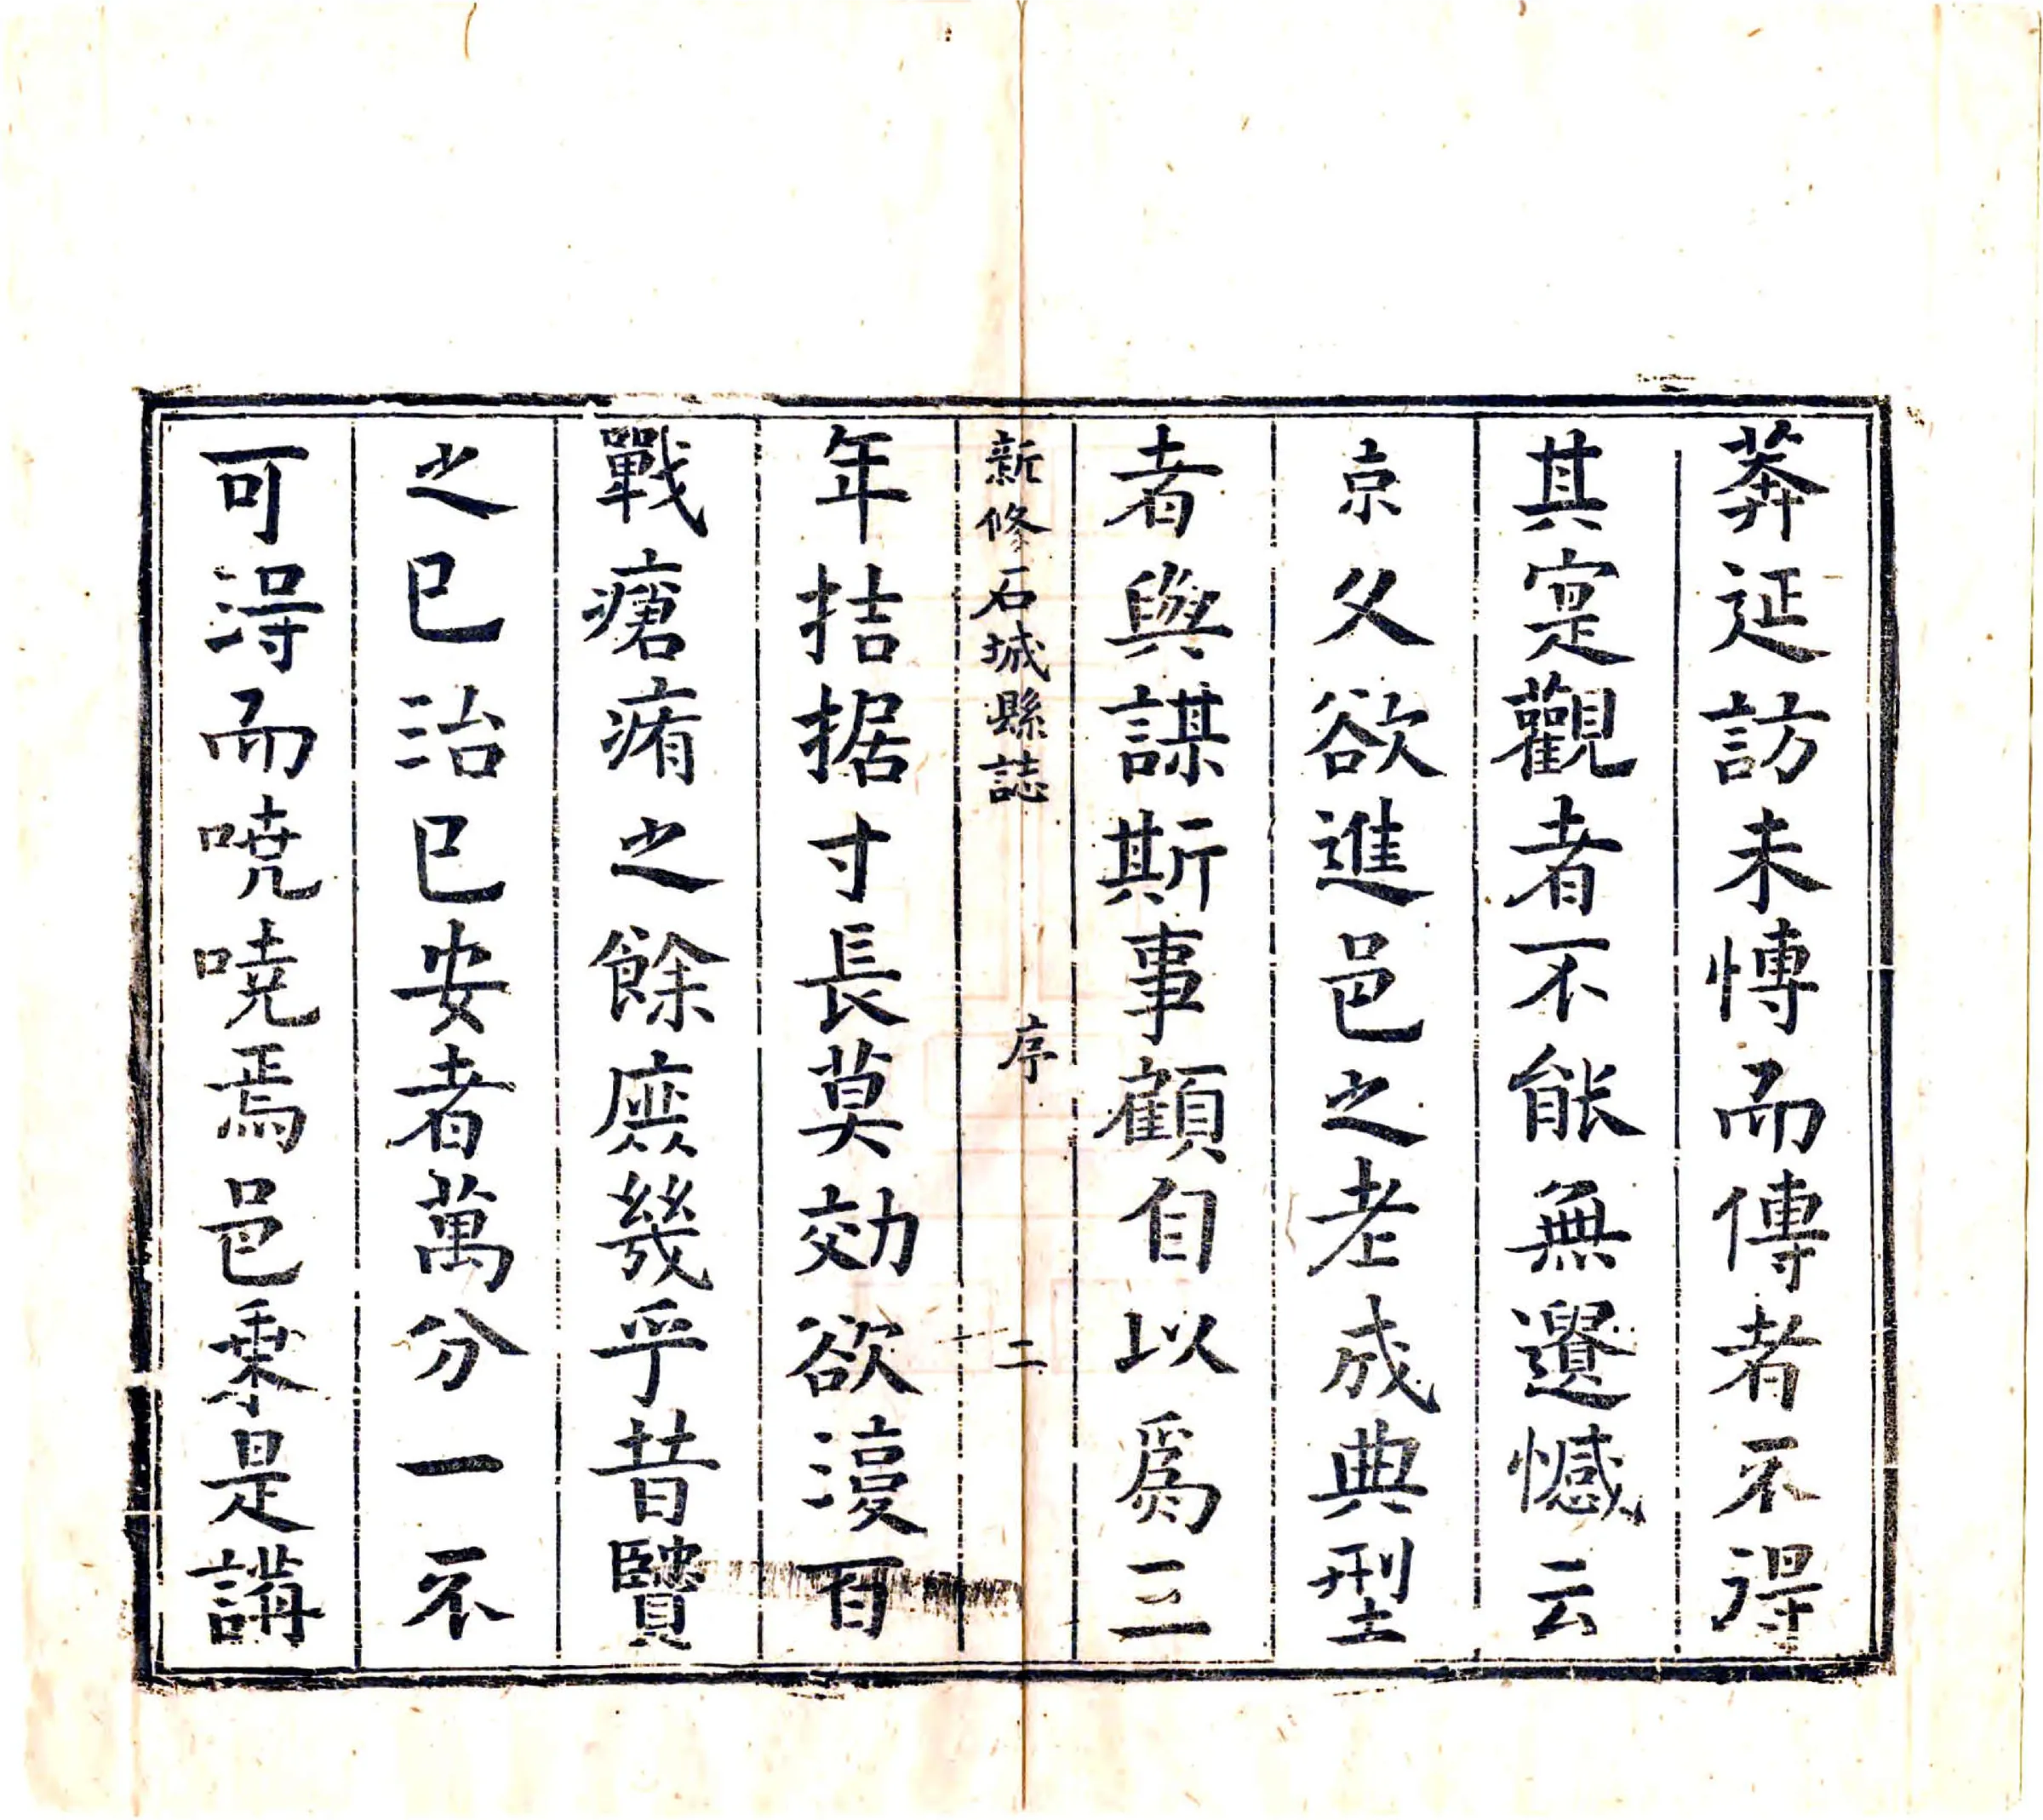 莾延訪未愽而傳者不淂
其寔觀者不能無遺憾云
京父欲進邑之老成典型
者與謀斯事顧自以爲三
新修石城縣誌 序 二
年拮据寸長莫効欲渡百
戰瘡痏之餘庻幾乎昔賢
之已治已安者萬分一不
可淂而嘵嘵焉邑乘是講